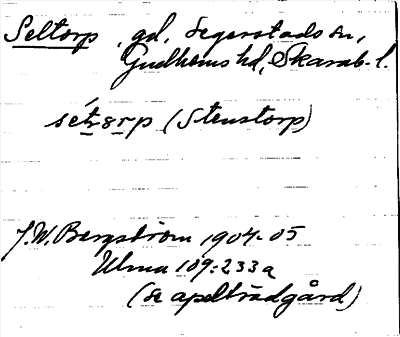 Seltorp, gd, Segerstads sn,
Gudhems hd, Skarab. l.
(Stenstorp)
J.W. Bergström 1904-05
Ulma 109:233a
(se apelträdgård)